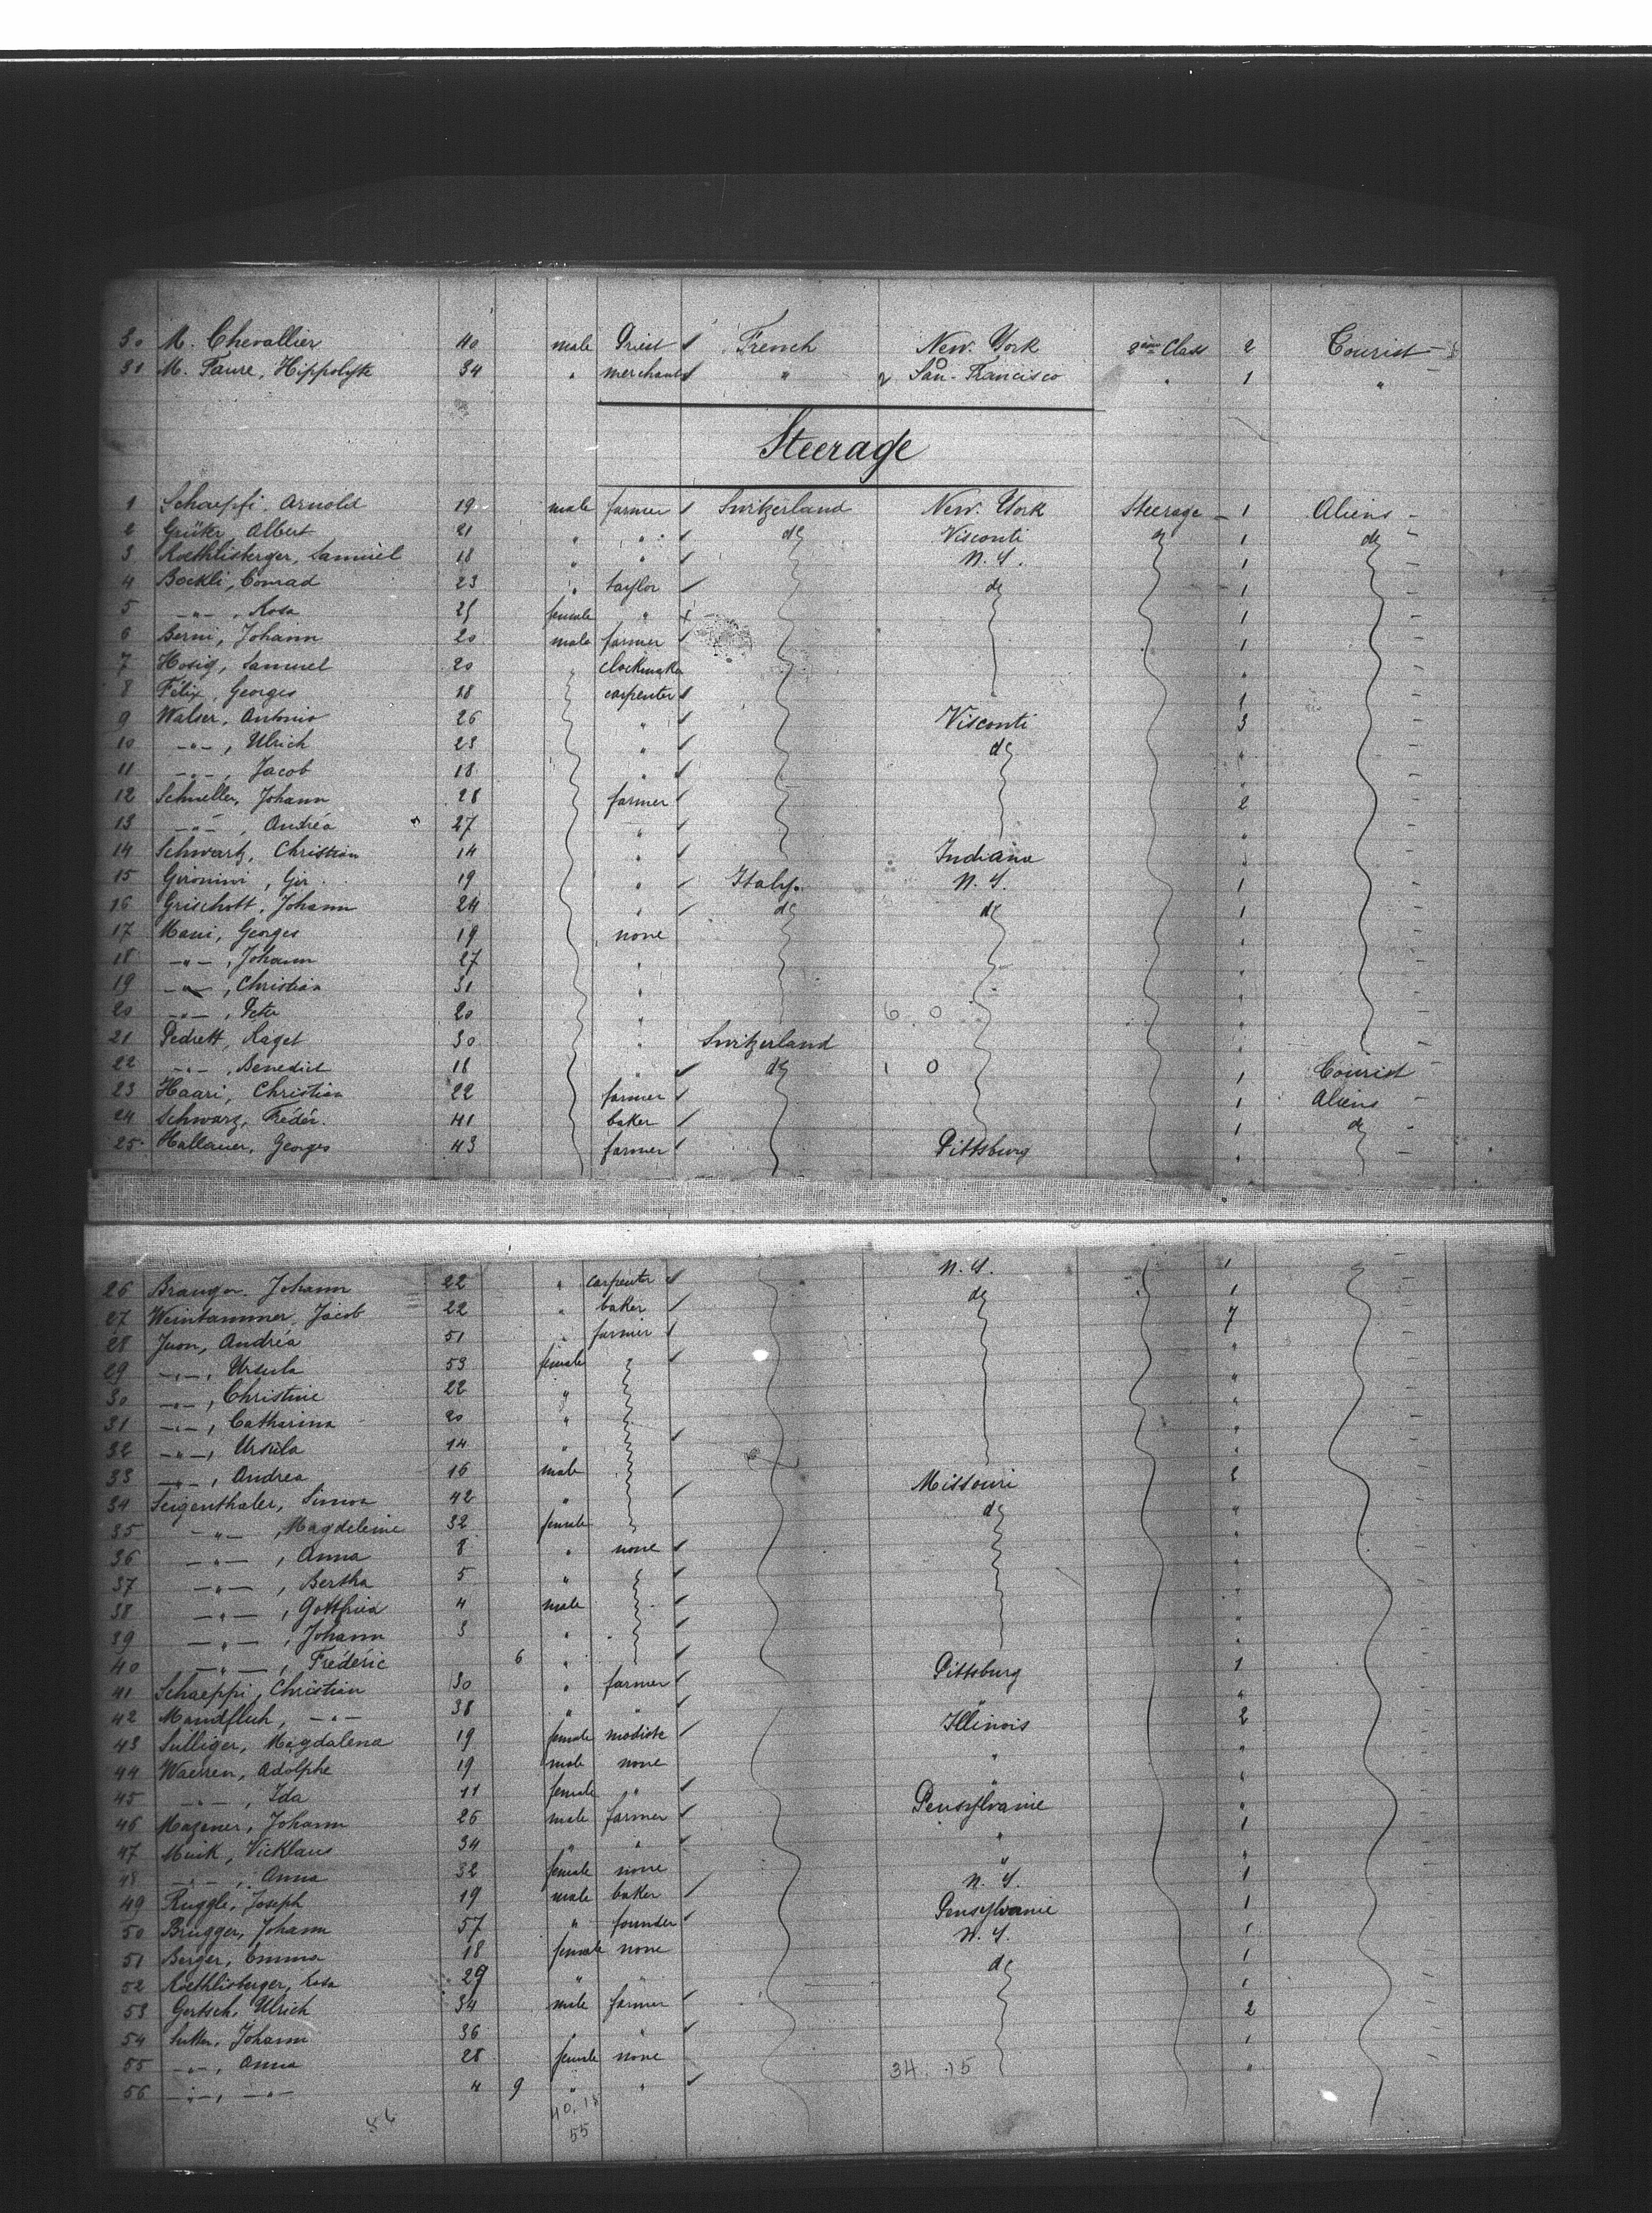 30 M. Chevallier 40 male Priest French New-York 2ème Class 2 Tourist
31 M. Faure, Hippolyte 34 " merchant " San-Francisco " 1 "
Steerage
1 Schaepfi, Arnold 19 male farmer Switzerland New-York Steerage 1 Aliens
2 Grüter Albert 21 " " do Visconti do 1 do
3 Roethlisberger, Samuel 18 " " N.Y. 1
4 Bockli, Conrad 23 " taylor do 1
5 -"-, Rosa 25 female " 1
6 Berni, Johann 20 male farmer 1
7 Hosig, Samuel 20 " clockmaker "
8 Félix, Georges 18 carpenter 1
9 Walser, Antonio 26 " Visconti 3
10 -"-, Ulrich 23 " do "
11 -"-, Jacob 18 " "
12 Schneller, Johann 28 farmer 2
13 -"-, Andréa 27 " "
14 Schwartz, Christian 14 " Indiana "
15 Geronimi, Gir. 19 " Italy N.Y. 1
16 Grischott, Johann 24 " do do 1
17 Mani, Georges 19 none "
18 -"-, Johann 27 " "
19 -"-, Christian 31 " "
20 -"-, Peter 20 " 6 0 "
21 Pedrett, Raget 30 " Switzerland "
22 -"-, Benedict 18 " do 1 0 1 Tourist
23 Haari, Christian 22 farmer 1 Aliens
24 Schwarz, Fréder. 41 baker 1 do
25 Hallauer, Georges 43 farmer Pittsburg "
26 Branger, Johann 22 " carpenter N.Y. 1
27 Weintammer, Jacob 22 " baker do 1
28 Juon, Andréa 51 " farmer 7
29 -"-, Ursula 53 female "
30 -"-, Christine 22 " "
31 -"-, Catharina 20 " "
32 -"-, Ursula 14 " "
33 -"-, Andrea 16 male "
34 Seigenthaler, Simon 42 " Missouri
35 -"-, Magdeleine 32 female do "
36 -"-, Anna 8 " none "
37 -"-, Bertha 5 " "
38 -"-, Gottfried 4 male "
39 -"-, Johann 3 " "
40 -"-, Frédéric 6 " "
41 Schaeppi, Christian 30 " farmer Pittsburg 1
42 Mandfluh, -"- 38 " " " "
43 Sulliger, Magdalena 19 female modiste Illinois 2
44 Waeren, Adolphe 19 male none " "
45 -"-, Ida 11 female " " "
46 Mazener, Johann 26 male farmer Pensylvanie 1
47 34 " " "
48 -"-, Anna 32 female none " "
49 Ruggle, Joseph 19 male baker N.Y. 1
50 Brügger, Johann 57 " founder Pensylvanie 1
51 Berger, Emma 18 female none N.Y. 1
52 Roethlisberger, Rosa 29 " " do 1
53 Gertsch, Ulrich 34 male farmer 1
54 Sutter, Johann 36 " " 2
55 -"-, Anna 28 female none "
56 -"-, -"- 4 9 " " 34 15 "
56 40.15
55